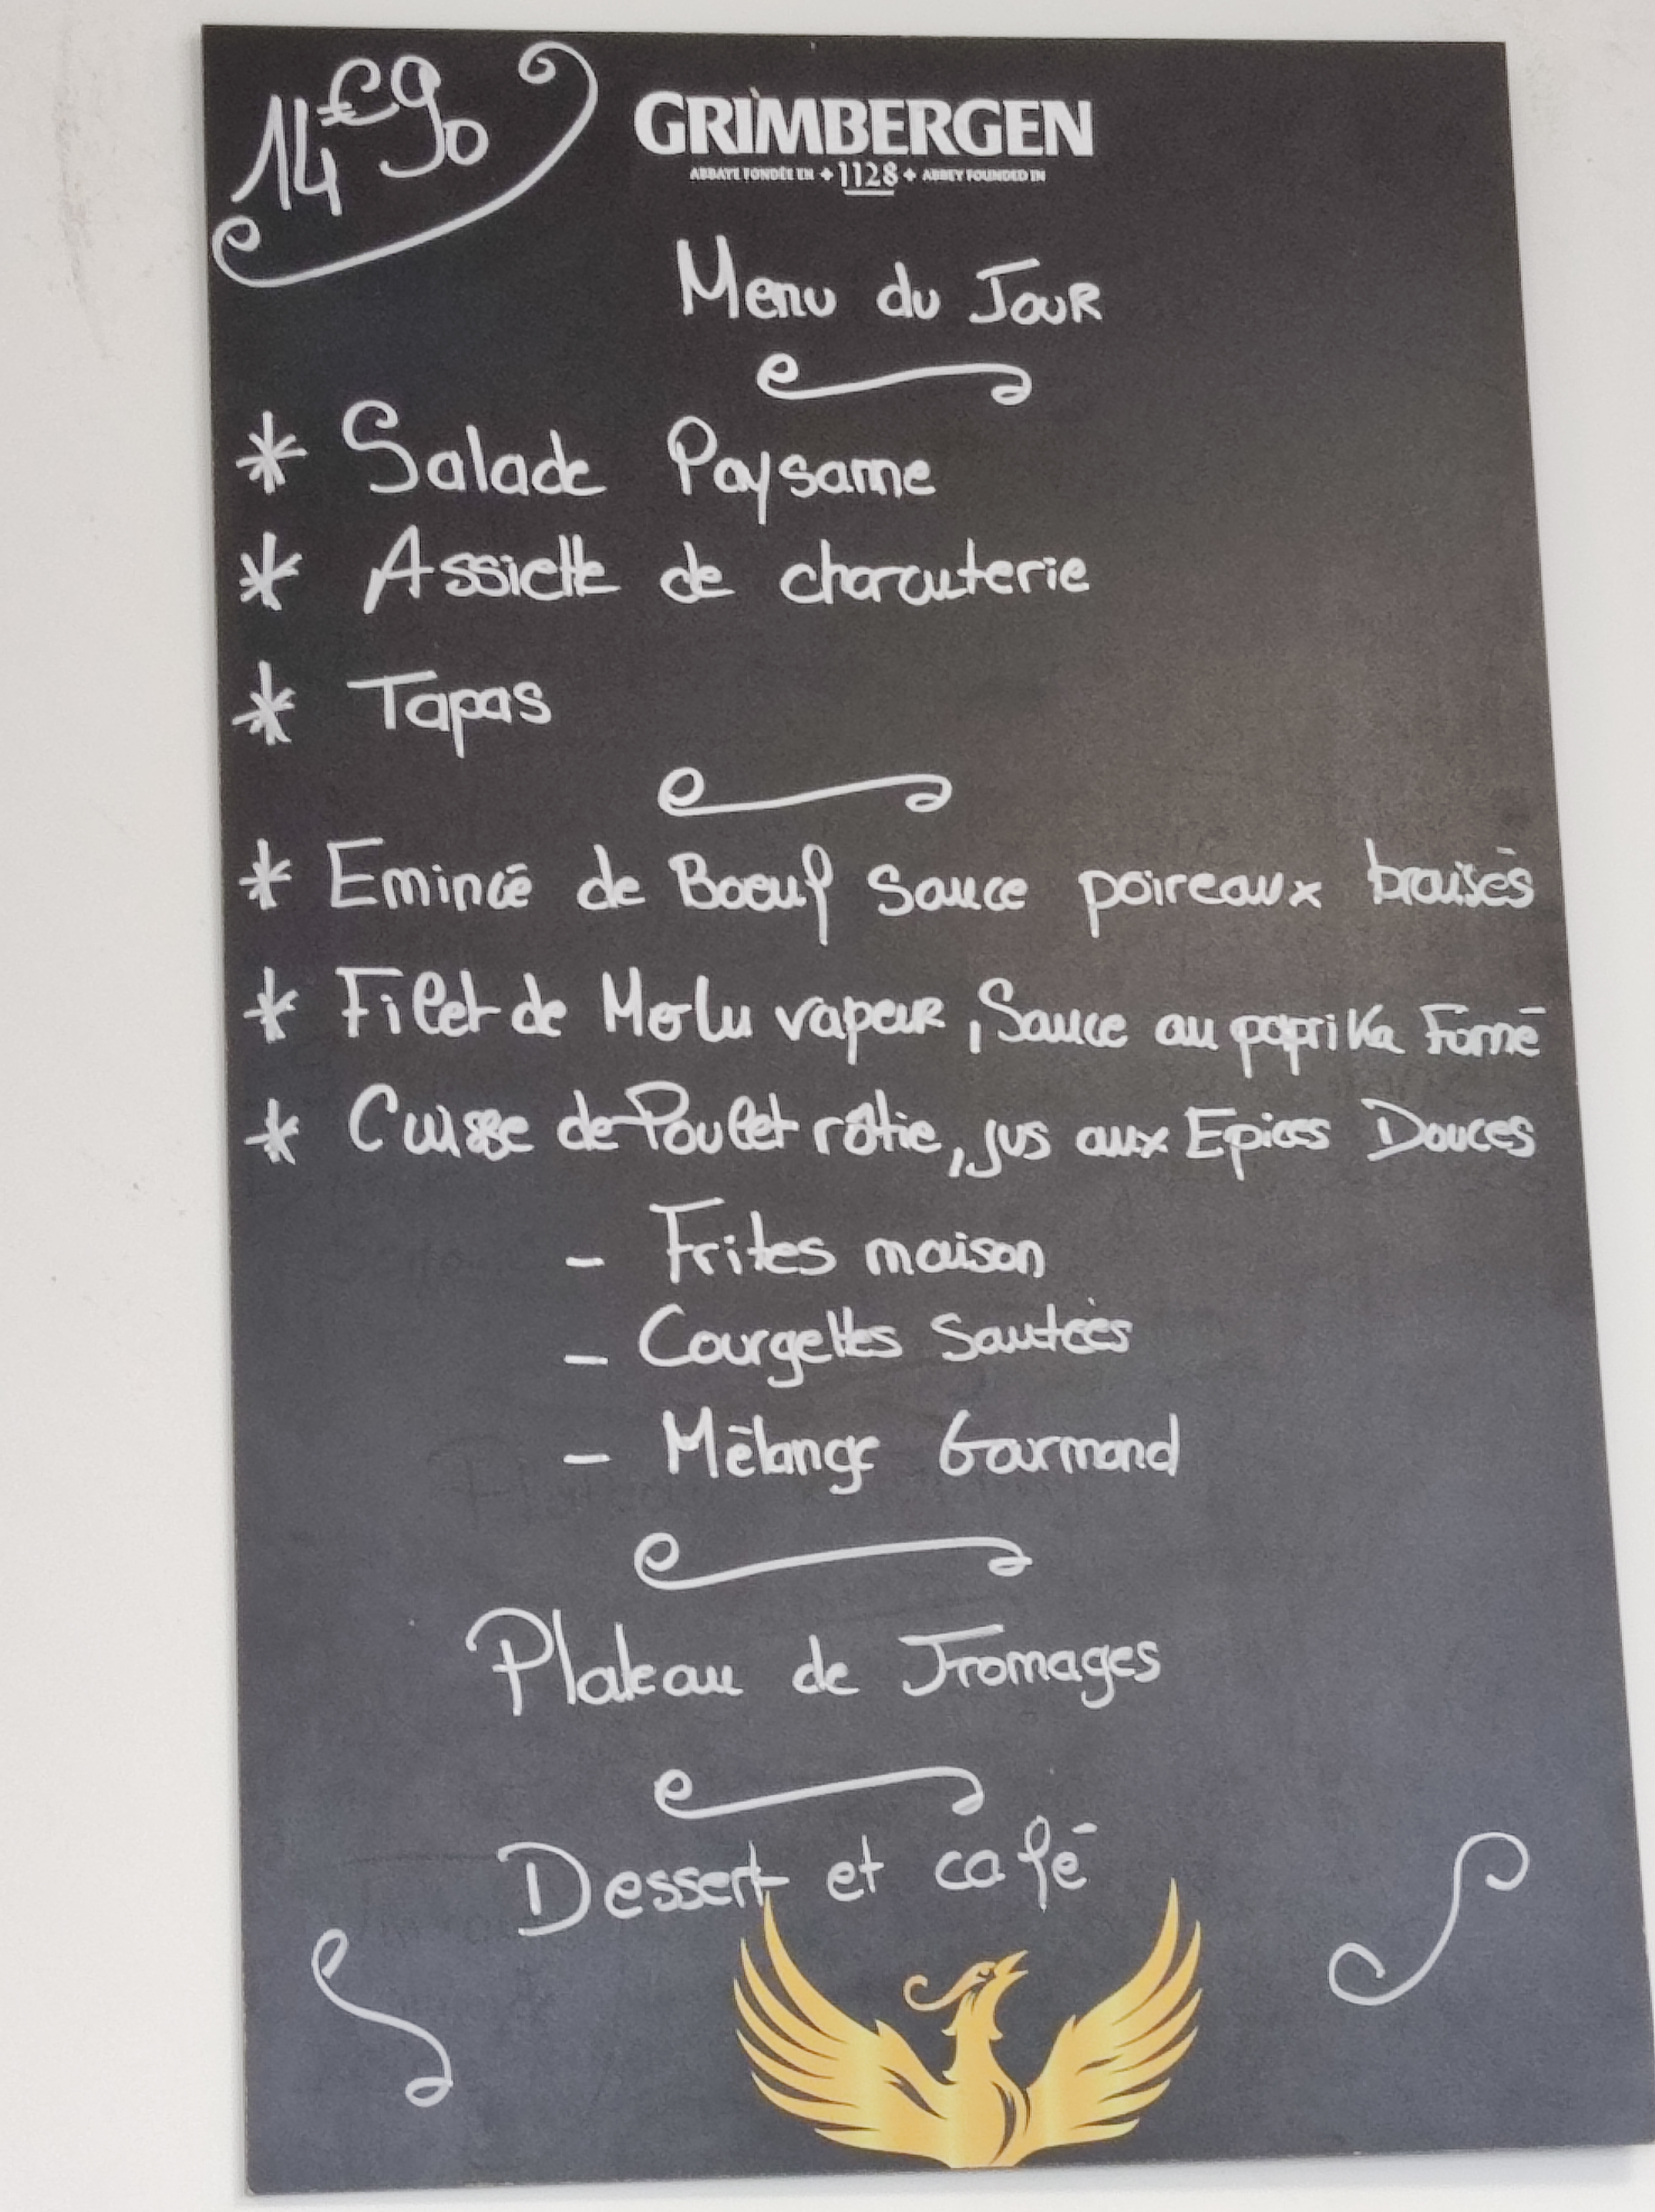 14€90
GRIMBERGEN
ABBAYE FONDÉE EN 1128 ABBEY FOUNDED IN
Menu du Jour
* Salade Paysanne
* Assiette de charcuterie
* Tapas
* Emincé de Boeuf Sauce poireaux braisés
* Filet de Merlu vapeur, Sauce au paprika Fumé
* Cuisse de Poulet rôtie, jus aux Epices Douces
- Frites maison
- Courgettes Sautées
- Mélange Gourmand
Plateau de Fromages
Dessert et café